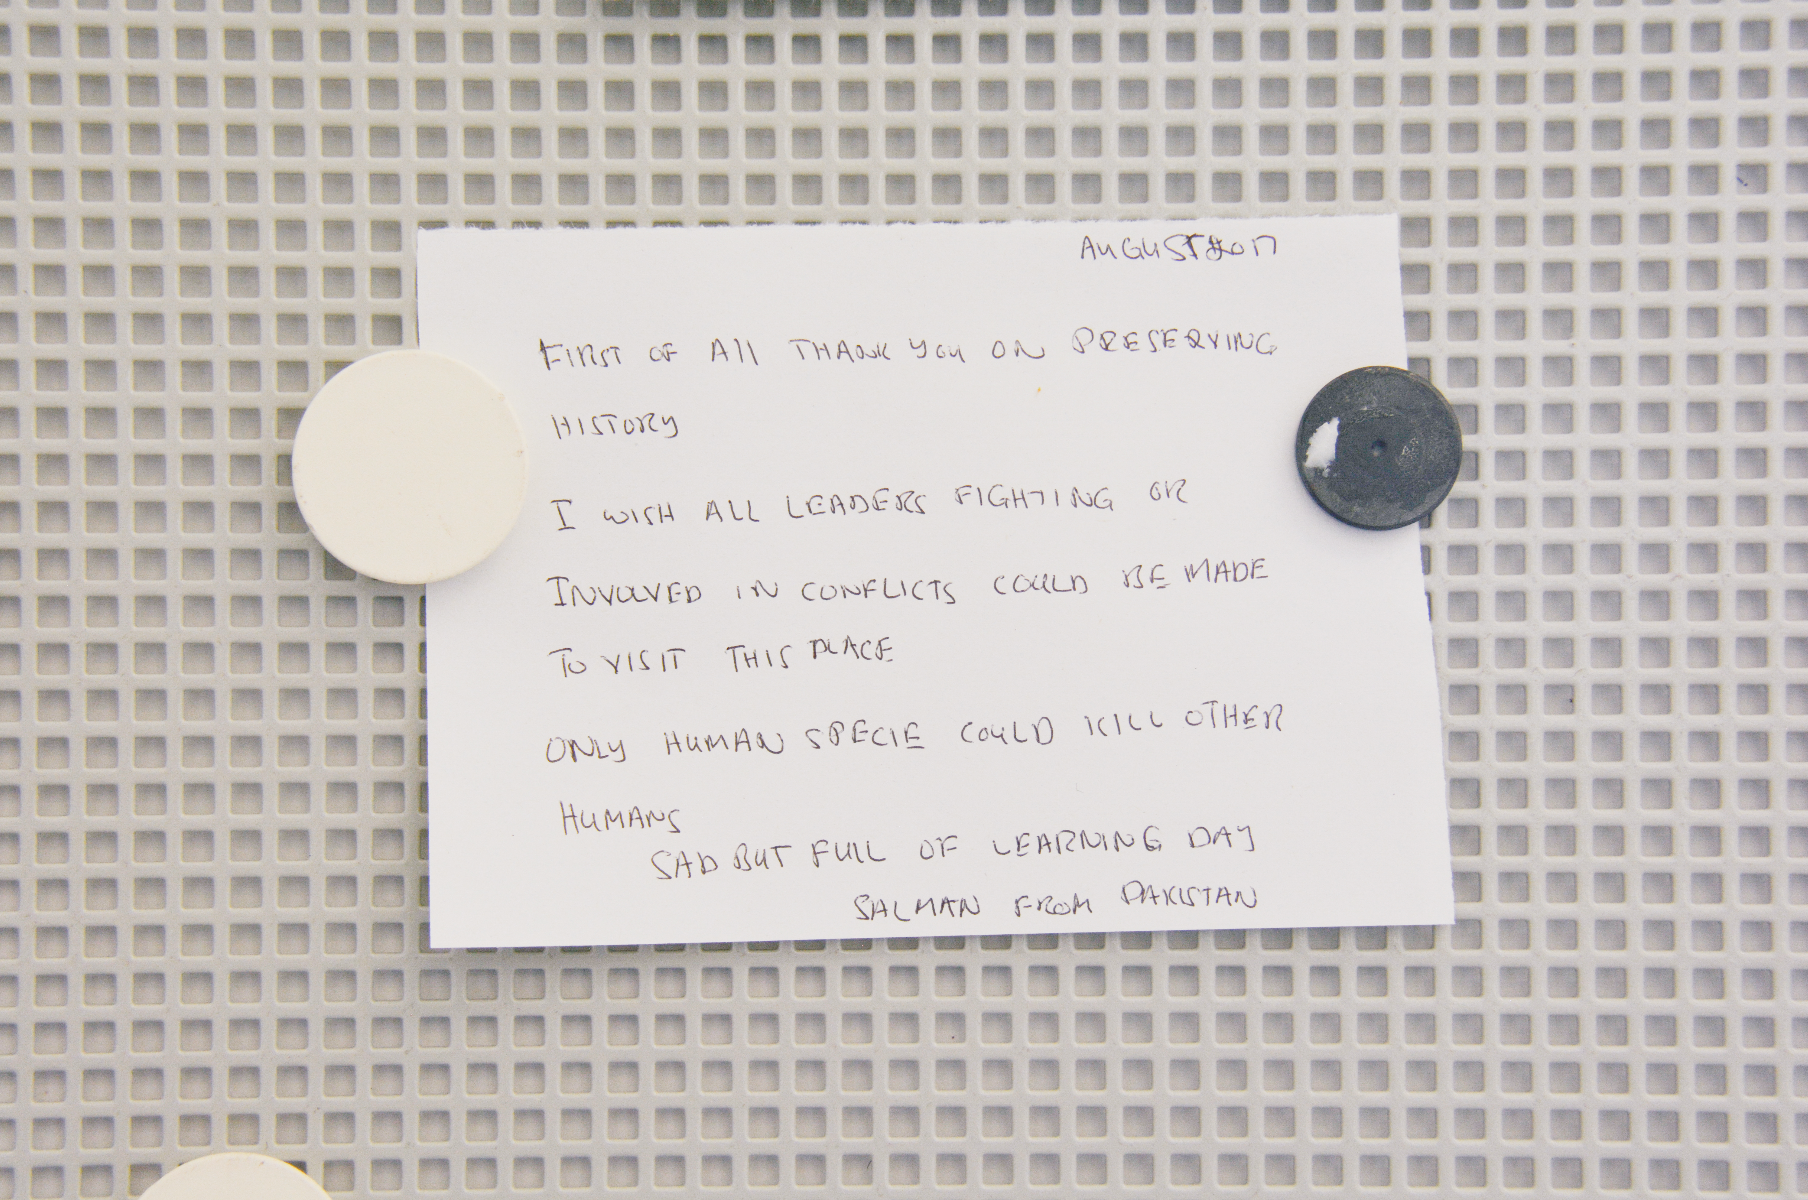 AUGUST 2017
FIRST OF All THANK YOU ON PRESERVING
HISTORY
I WISH ALL LEADERS FIGHTING OR
INVOLVED IN CONFLICTS COULD BE MADE
TO VISIT THIS PLACE
ONLY HUMAN SPECIE COULD KILL OTHER
HUMANS
SAD BUT FULL OF LEARNING DAY
SALMAN FROM PAKISTAN